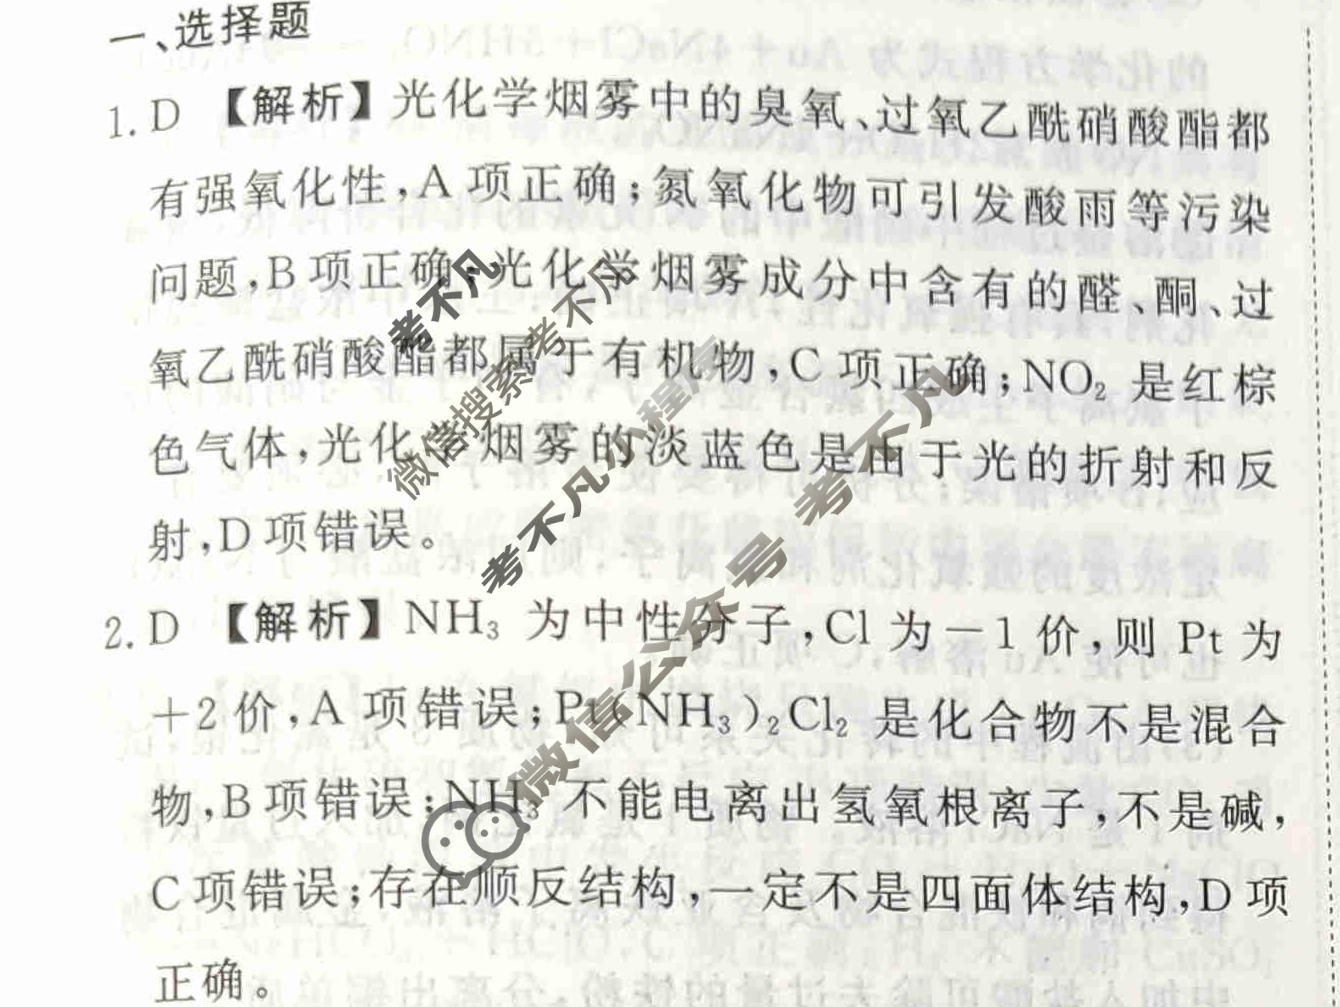 一、选择题
1. D 【解析】光化学烟雾中的臭氧、过氧乙酰硝酸酯都
有强氧化性,A 项正确;氮氧化物可引发酸雨等污染
问题,B 项正确;光化学烟雾成分中含有的醛、酮、过
氧乙酰硝酸酯都属于有机物,C 项正确;NO₂ 是红棕
色气体,光化学烟雾的淡蓝色是由于光的折射和反
射,D 项错误。
2. D 【解析】NH₃ 为中性分子,Cl 为－1 价,则 Pt 为
＋2 价,A 项错误;Pt(NH₃)₂Cl₂ 是化合物不是混合
物,B 项错误;NH₃ 不能电离出氢氧根离子,不是碱,
C 项错误;存在顺反结构,一定不是四面体结构,D 项
正确。
考不凡
微信搜索考不凡
考不凡小程序
微信公众号 考不凡